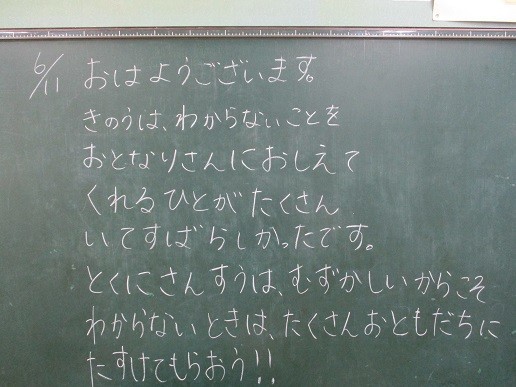 6/11 おはようございます。
きのうは、わからないことを
おとなりさんにおしえて
くれるひとがたくさん
いてすばらしかったです。
とくにさんすうは、むずかしいからこそ
わからないときは、たくさんおともだちに
たすけてもらおう!!